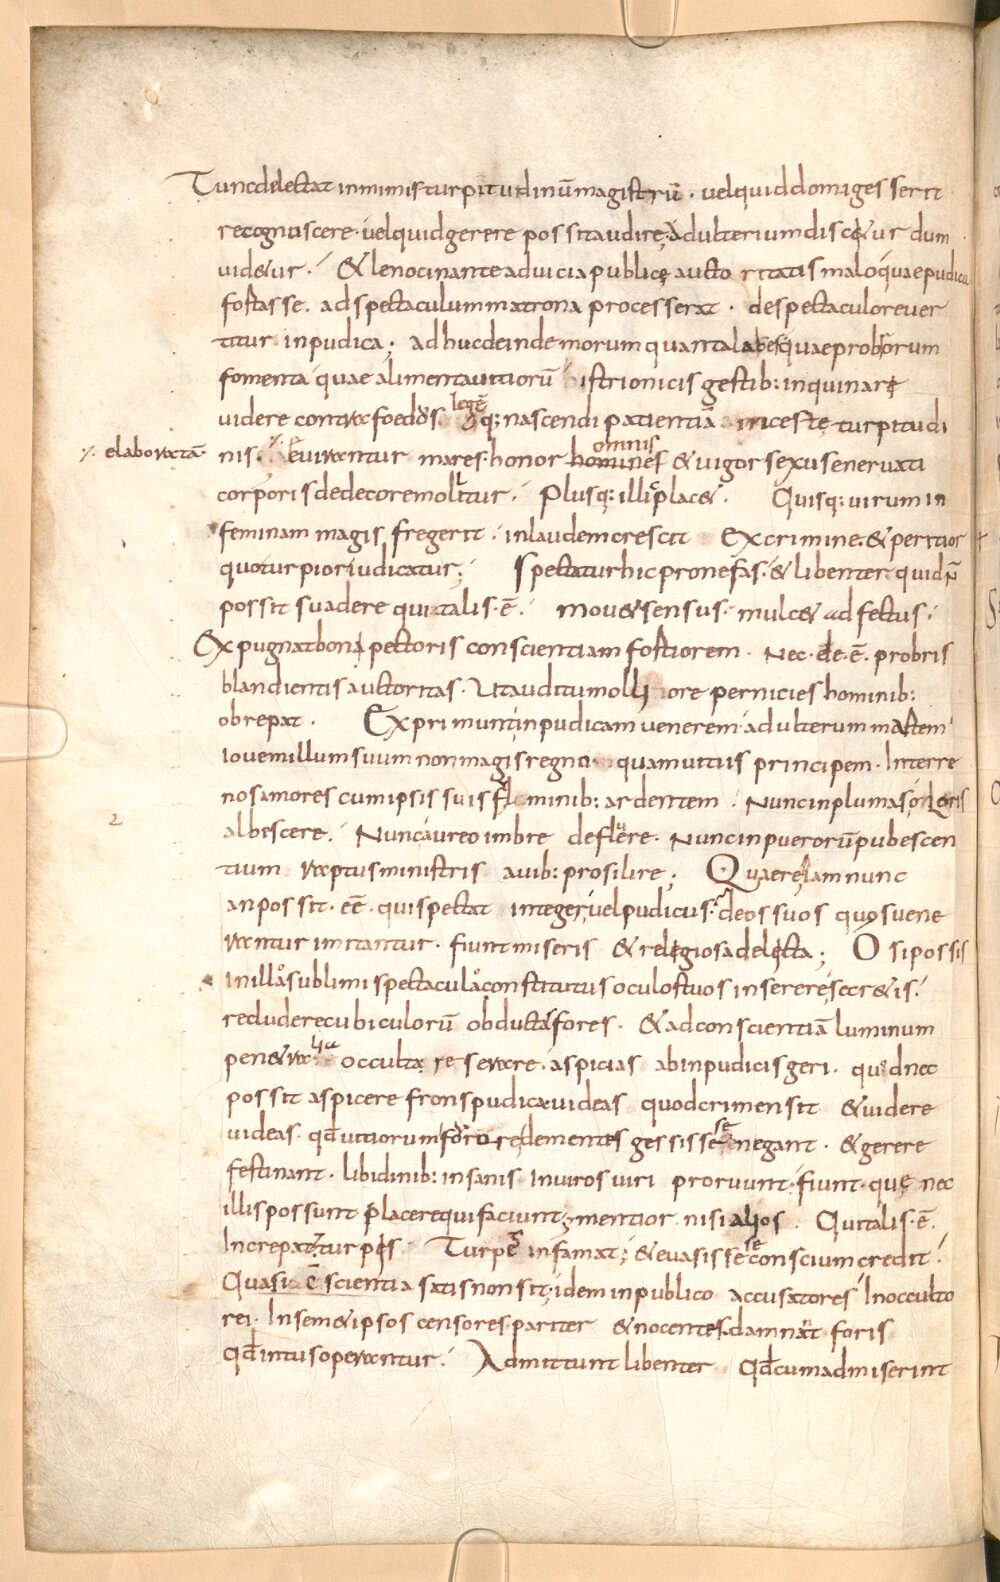 Tunc delectat inmimis turpitudinū magistrū · uel quid domi gesserit
recognoscere · uel quid gerere possit audire; adulterium discetur dum
uidetur · & lenocinante ad uicia publice auctoritatis malo quae pudica
fortasse · ad spectaculum matrona processerat · de spectaculo reuer
titur inpudica; adhuc deinde morum quanta labes quae probrorum
fomenta quae alimenta uitiorū istrionicis gestib: inquinare
legē
videre contra foedus q: nascendi patientiā incestę turpitudi
elaboratā
nis · euirantur mares · honor homines omnis & uigor sexus eneruati
corporis dedecore mollitur · Plusq: illic placet · Quisq: uirum in
feminam magis fregerit · in laudem crescit Ex crimine · & peritior
quo turpior iudicatur; Spectatur hic pro nefas · & libenter quid n̄
possit suadere qui talis · ē · mouet sensus · mulcet adfectus ·
Expugnat boni pectoris conscientiam fortiorem · Nec · de · ē · probris
blandientis auctoritas · Ut auditu molliore pernicies hominib:
obrepat · Exprimunt inpudicam uenerem · adulterum martem
iouem illum suum non magis regno quam uitiis principem · Interre
nos amores cum ipsis suis fulminib: ardentem · Nunc in plumas oloris
albescere · Nunc aureo imbre defluere · Nunc in puerorū pubescen
tium raptus ministris auib: prosilire; Quaere iam nunc
an possit · eē · qui spectat integer uel pudicus · deos suos quos uene
rantur imitantur · fiunt miseris & religiosa delicta; O si possis
in illa sublimi spectacula constitutus oculos tuos inserere secretis ·
recludere cubiculorū obductas fores · & ad conscientiā luminum
penetralia occulta reserare · aspicias ab inpudicis geri · quod nec
possit aspicere frons pudica uideas quod crimen sit & uidere
uideas · qđ uitiorum furore dementes gessisse se negant · & gerere
festinant · libidinib: insanis in uiros uiri proruunt · fiunt · quę nec
illis possunt placere qui faciunt; mentior nisi alios · Qui talis · ē ·
Increpat turpis Turpes infamat; & euasisse se conscium credit ·
Quasi cōscientia satis non sit; idem in publico accusatores In occulto
rei · In semet ipsos censores pariter & nocentes · damnant foris
qđ intus operantur · Admittunt libenter qđ cum admiserint